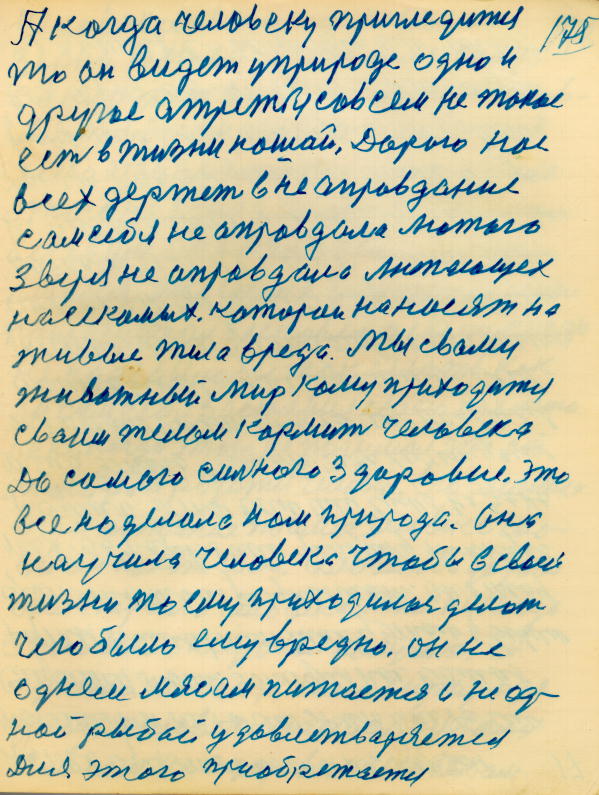 175
А когда человеку пригледится
то он видет уприроде одно и
другое атретый совсем не такое
ест в жизни нашай, Дорого нас
всех держет в не аправдание
самсебя не аправдала лютого
Зверя не аправдала литающех
насекомых. которои наносят на
живые тела вреда. Мы свами
животный мир кому приходится
сваим телом кормит человека
До самого силного Здоровие. Это
все наделала нам природа. Она
научила человека чтобы в своей
жизни то ему приходилося делат
чегобыло ему вредно. он не
однем мясам питается и не од-
ной рыбай удовлетваряется
Для этого приобретается